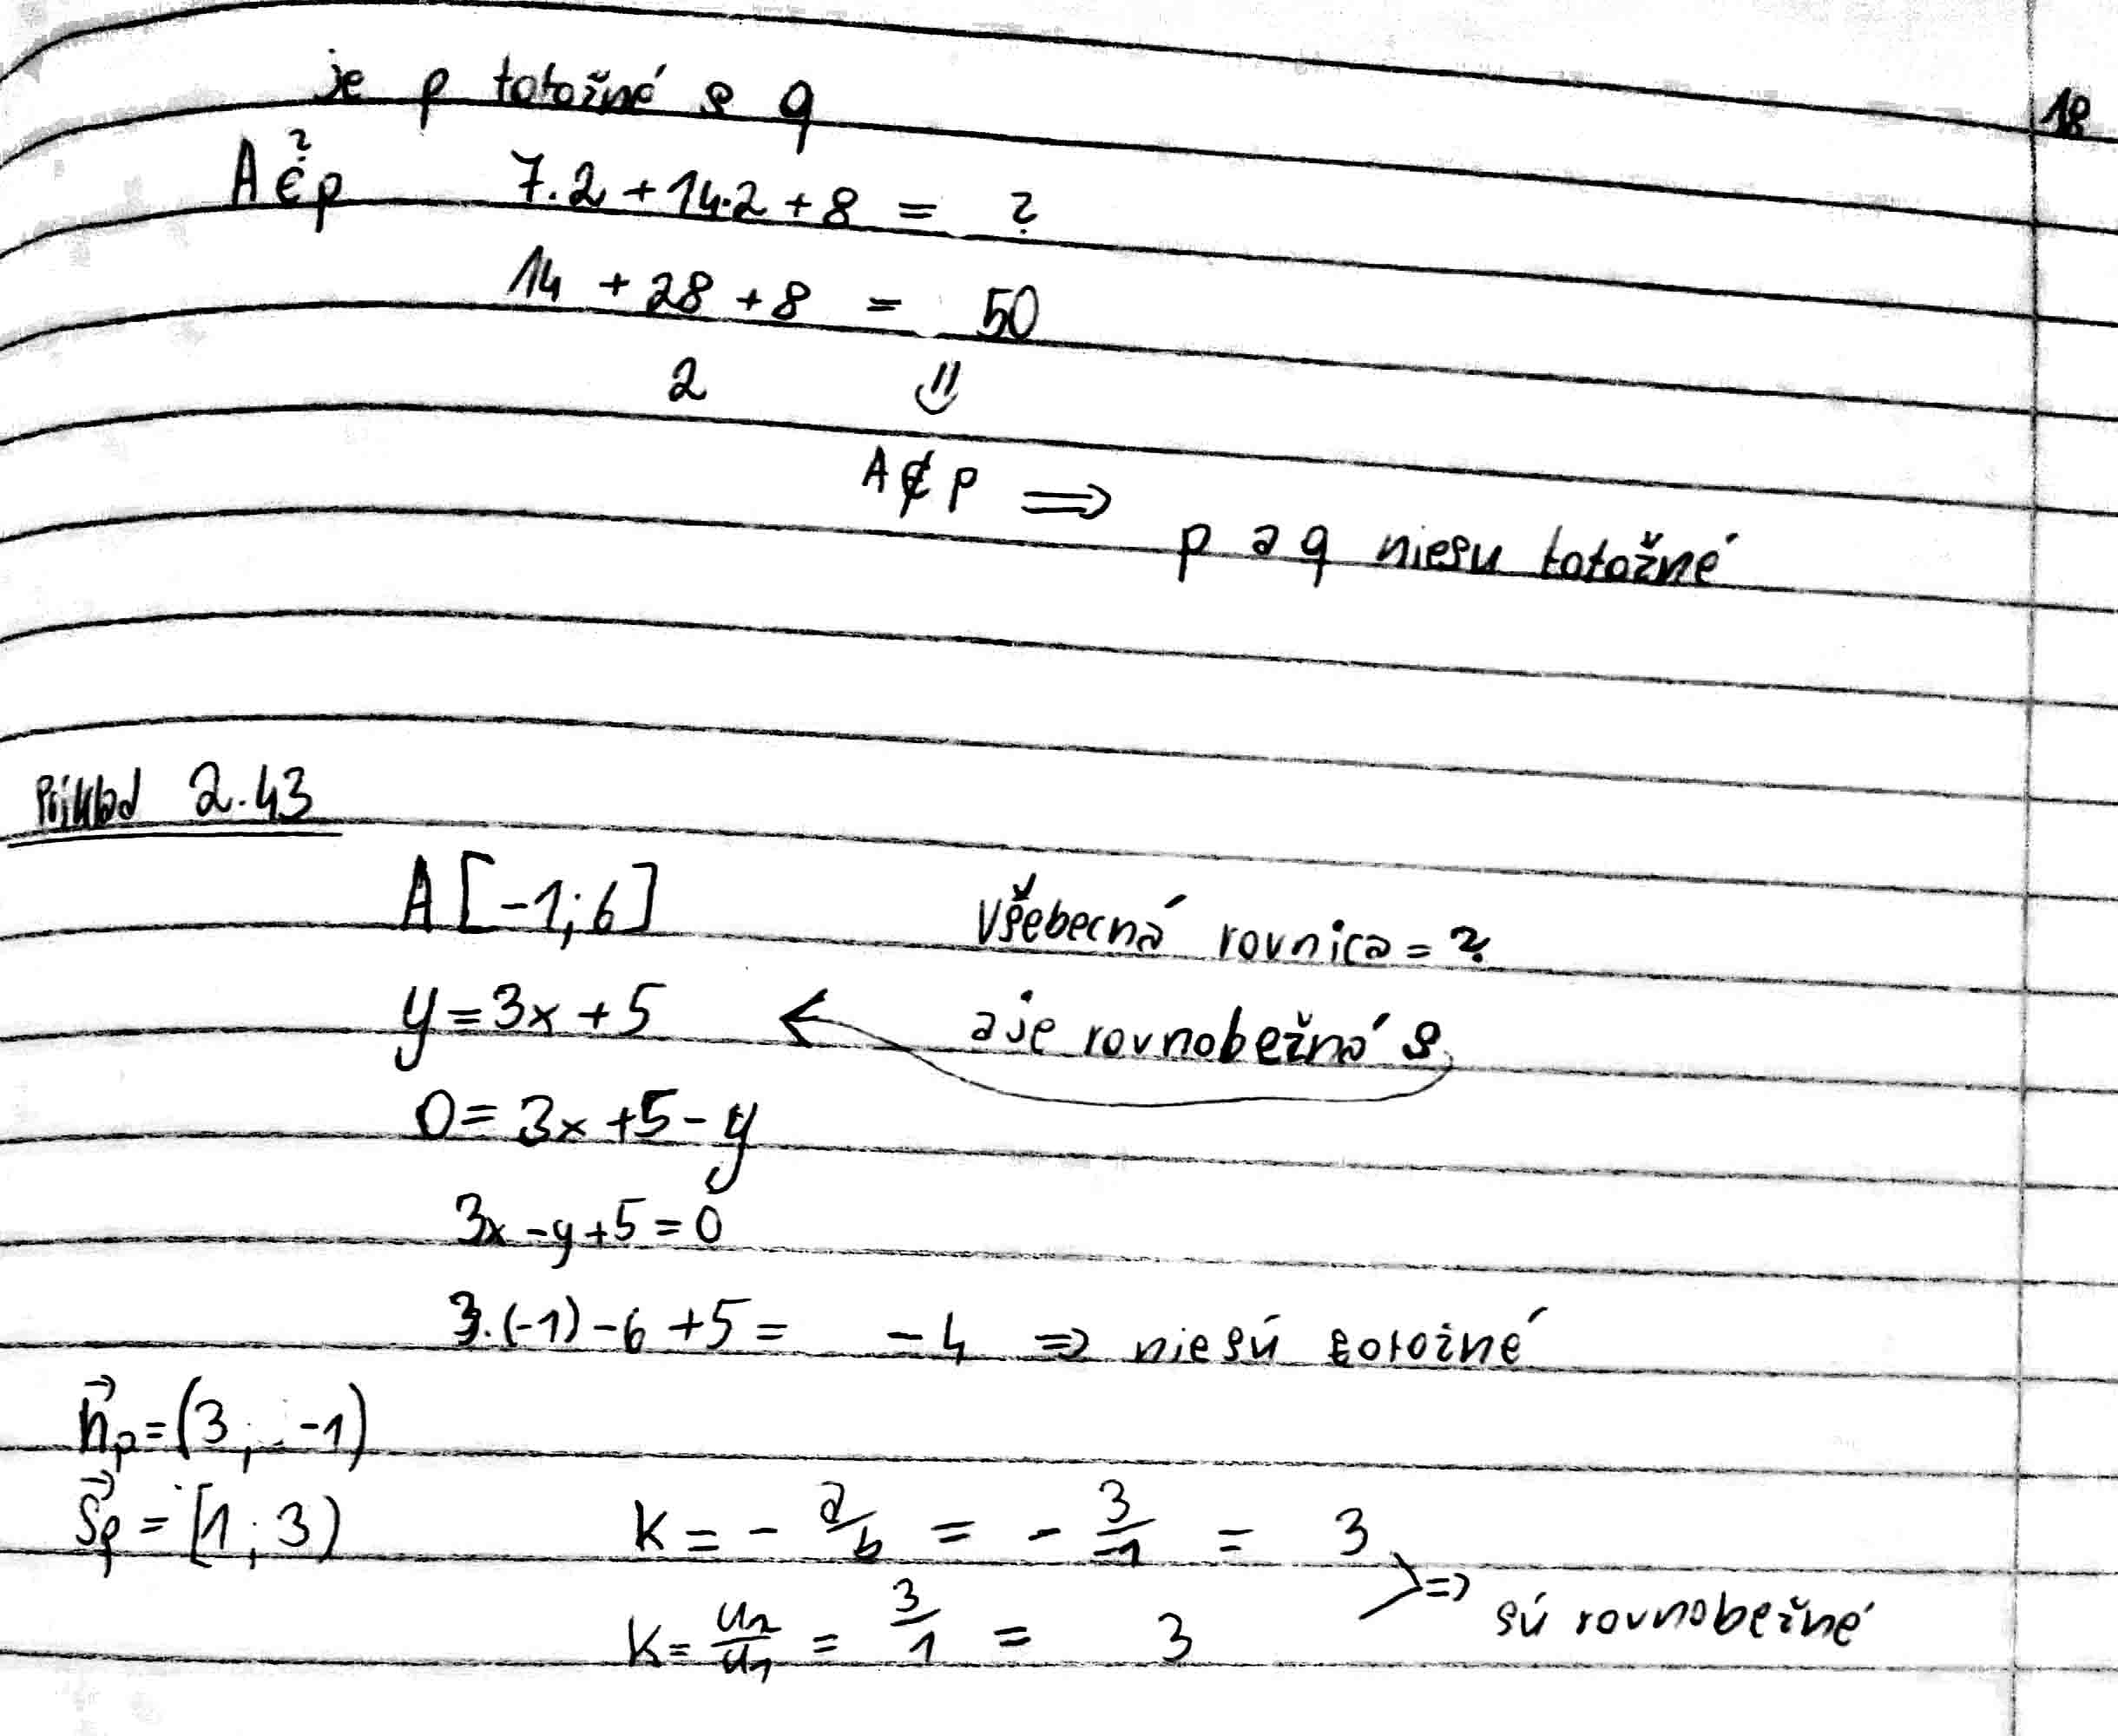 je p totožné s q
18
A ∈? p 7.2 + 14.2 + 8 = ?
14 + 28 + 8 = 50
2 ⇓
A ∉ p ⇒ p a q niesu totožné
Príklad 2.43
A [-1; 6] všebecná rovnica = ?
y = 3x + 5 ← a je rovnobežná s
0 = 3x + 5 - y
3x - y + 5 = 0
3.(-1) - 6 + 5 = -4 ⇒ niesú totožné
n⃗p = (3; -1)
s⃗p = [1; 3) K = - a/b = - 3/-1 = 3
K = u₂/u₁ = 3/1 = 3 ⇒ sú rovnobežné